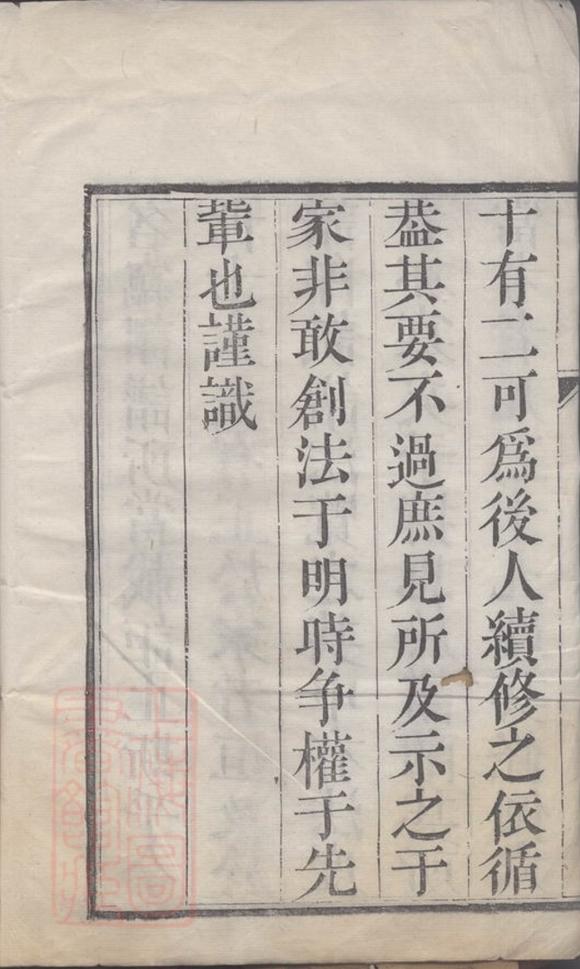 十有二可爲後人續修之依循
葢其要不過庶見所及示之于
家非敢創法于明時争權于先
輩也謹識